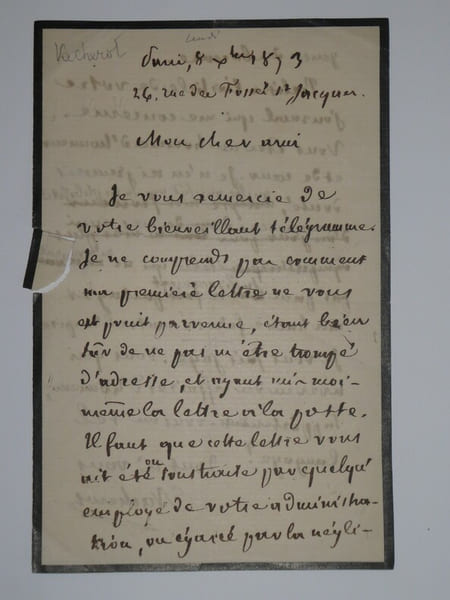 Vacherot
lundi
Paris, 8 Xbre 1873
26, rue des Fossés St Jacques.
Mon cher ami
Je vous remercie de
votre bienveillant télégramme.
Je ne comprends pas comment
ma première lettre ne vous
est point parvenue, étant bien
sûr de ne pas m'être trompé
d'adresse, et ayant mis moi-
même la lettre à la poste.
Il faut que cette lettre vous
ait été ou soustraite par quelqu'
employé de votre administra-
tion, ou égarée par la négli-